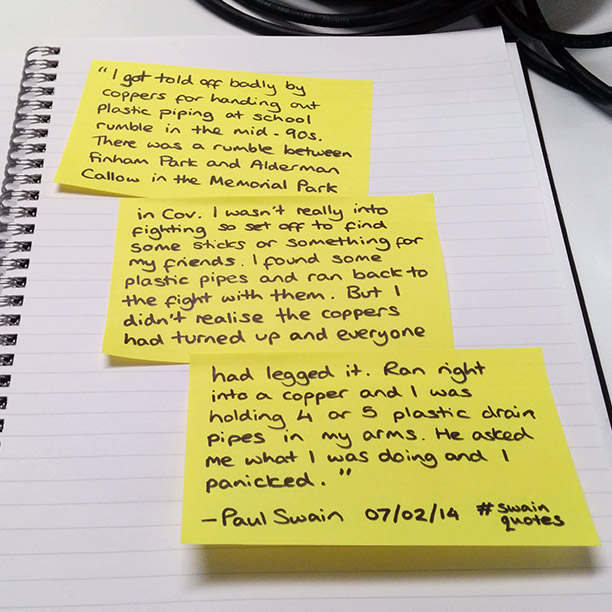 "I got told off badly by
coppers for handing out
plastic piping at school
rumble in the mid-90s.
There was a rumble between
Finham Park and Alderman
Callow in the Memorial Park
in Cov. I wasn't really into
fighting so set off to find
some sticks or something for
my friends. I found some
plastic pipes and ran back to
the fight with them. But I
didn't realise the coppers
had turned up and everyone
had legged it. Ran right
into a copper and I was
holding 4 or 5 plastic drain
pipes in my arms. He asked
me what I was doing and I
panicked."
—Paul Swain 07/02/14 #swain
quotes